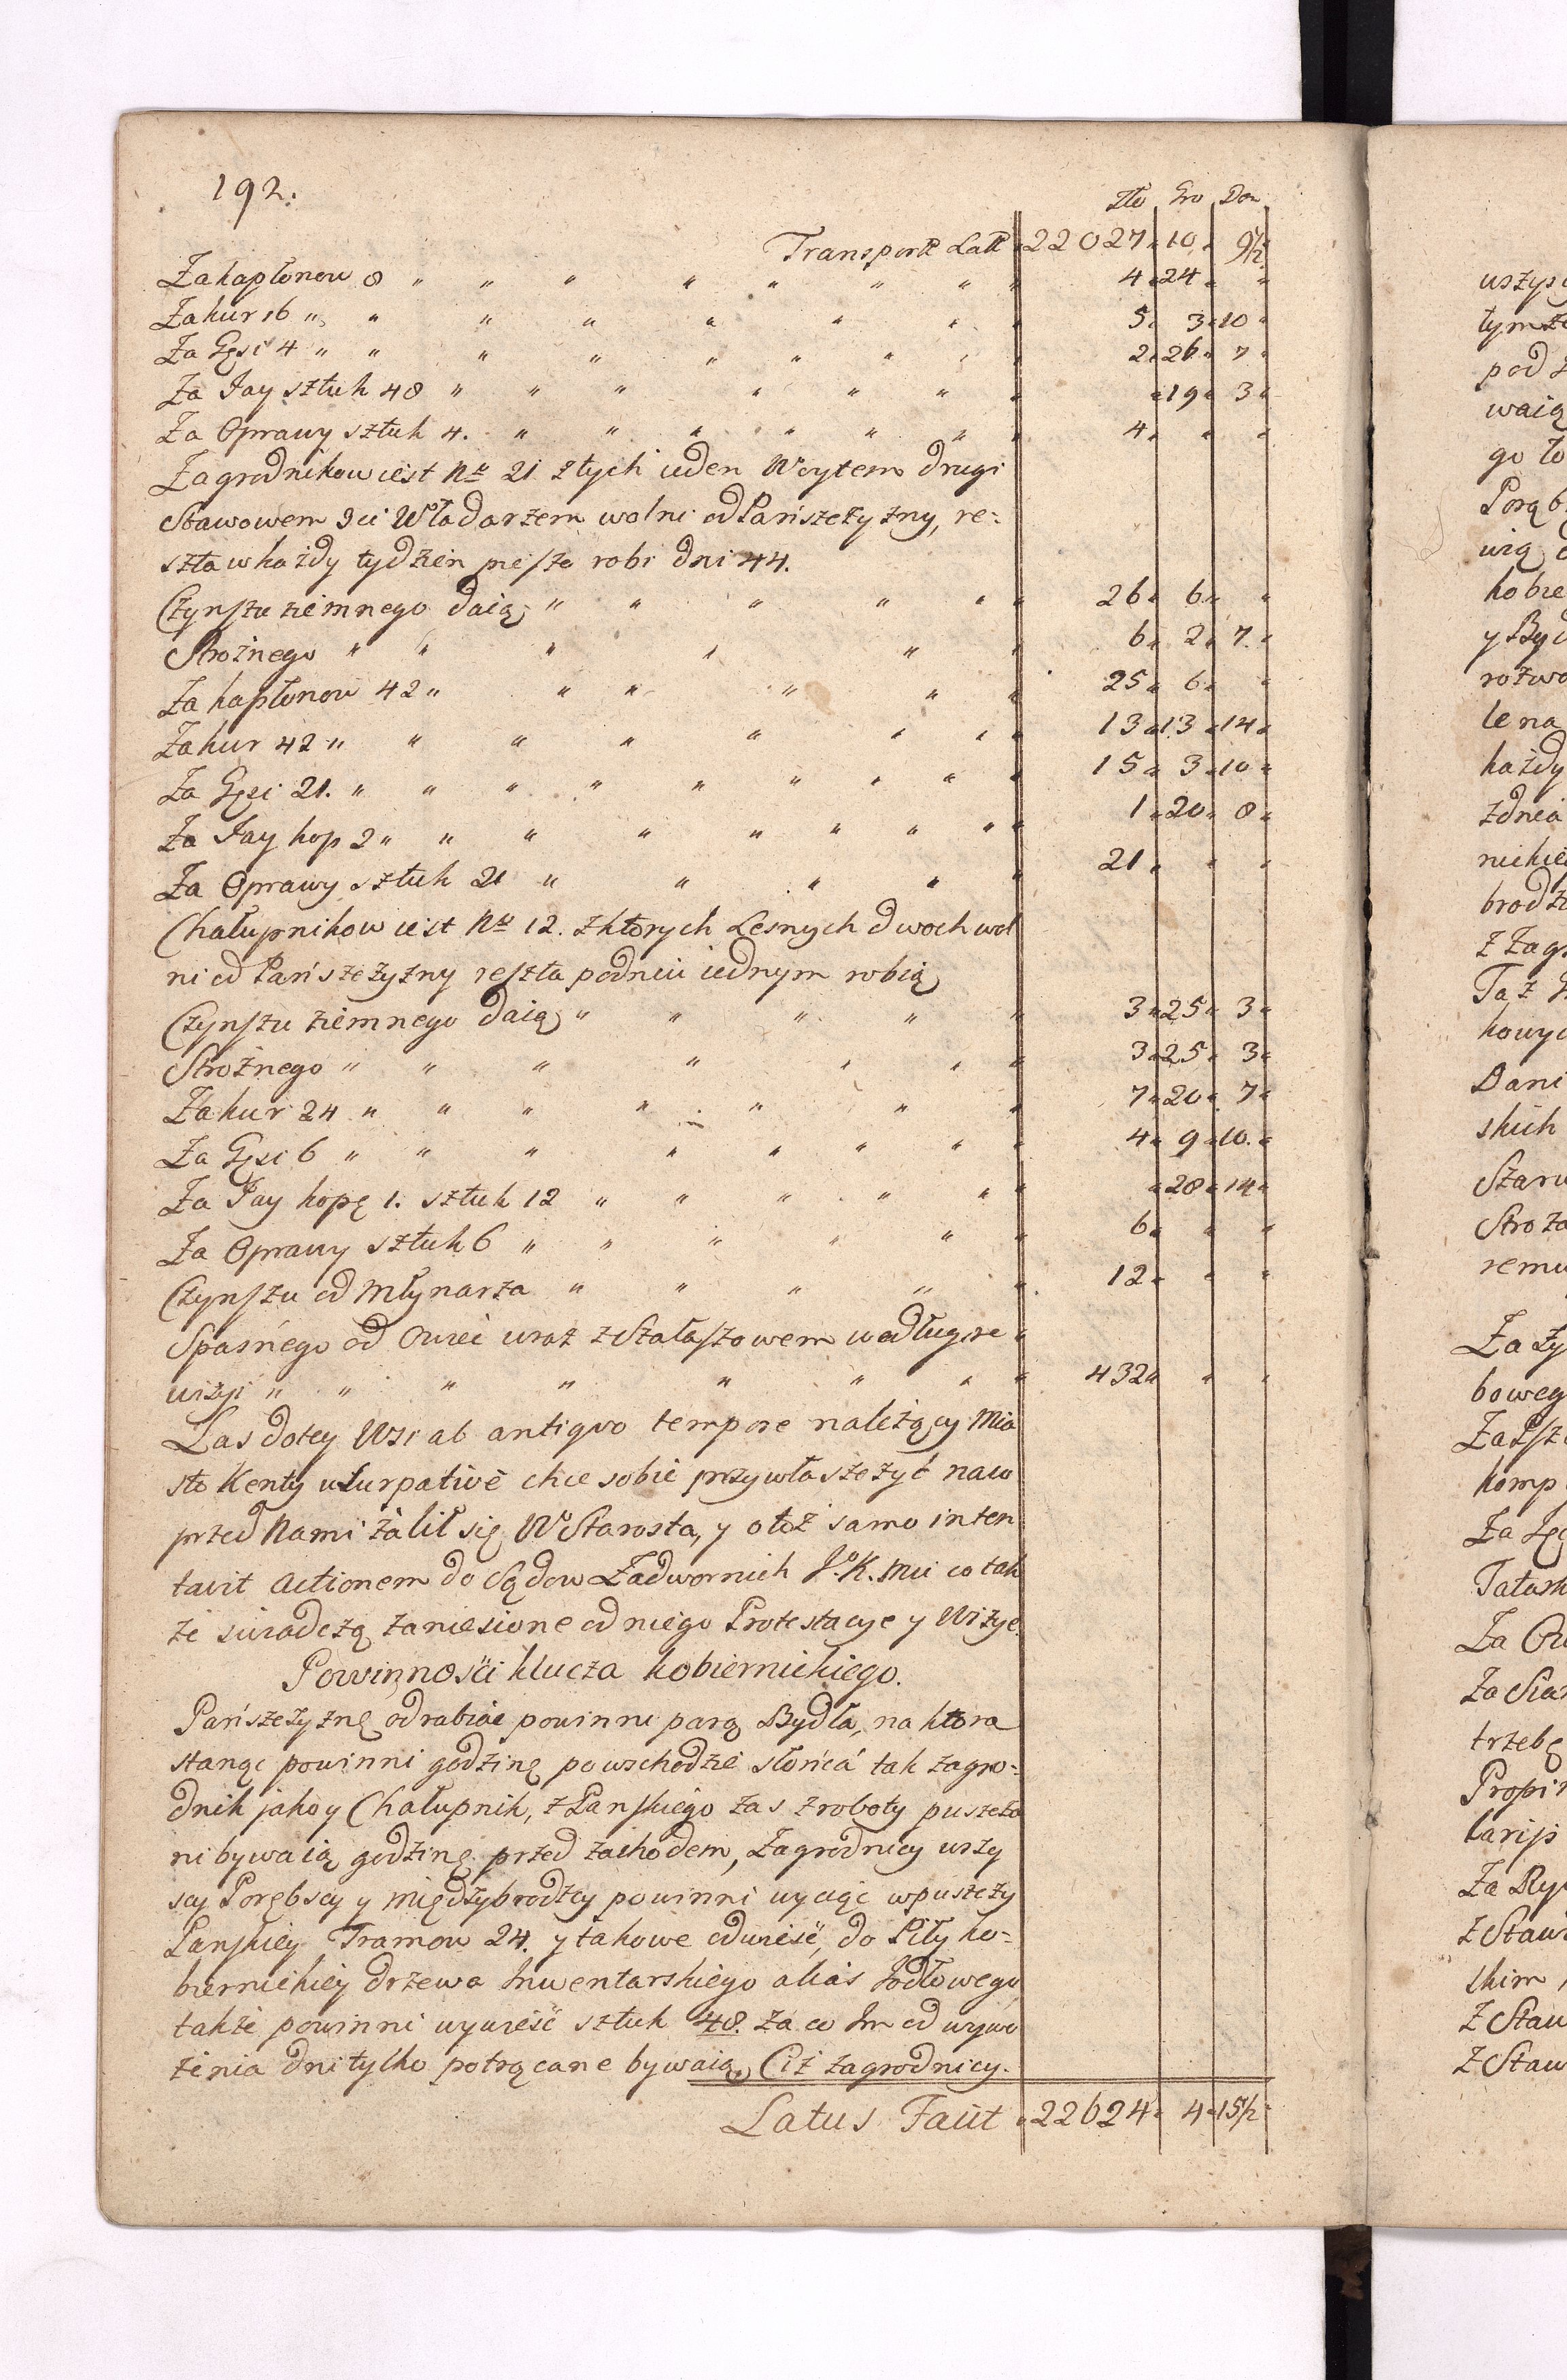 192.
Zło Gro Den
Transport Latt 22027 10 9½
Za kapłonow 8 " " " " " " " 4 24 "
Za kur 16 " " " " " " " " 5 3 10
Za Gęsi 4 " " " " " " " " 2 26 7
Za Jay sztuk 48 " " " " " " " 19 3
Za Oprawy sztuk 4. " " " " " " 4 " "
Zagrodnikow iest No 21 z tych ieden Woytem drugi
Stawowem 3ci Władarzem wolni od Pańszczyzny, re-
szta w każdy tydzien pieszo robi dni 44.
Czynszu ziemnego daią " " " " " 26 6 "
Strożnego " " " " " " 6 2 7.
Za kapłonow 42 " " " " " " 25 6 "
Za kur 42 " " " " " " " 13 13 14
Za Gęsi 21. " " " " " " " " 15 3 10
Za Jay kop 2 " " " " " " " " 1 20 8
Za Oprawy sztuk 21 " " " " " 21 " "
Chałupnikow iest No 12. z ktorych Lesnych dwoch wol
ni od Pańszczyzny reszta po dniu iednym robią
Czynszu ziemnego daią " " " " " 3 25 3
Strożnego " " " " " " " 3 25 3
Za kur 24 " " " " " " " 7 20 7
Za Gęsi 6 " " " " " " " 4 9 10.
Za Jay kopę 1. sztuk 12 " " " " " " 28 14
Za Oprawy sztuk 6 " " " " " " 6 " "
Czynszu od Młynarza " " " " " 12 " "
Spasnego od Owiec wraz z Szałaszowem według re
wizyi " " " " " " " " 432 " "
Las do tey Wsi ab antiqvo tempore należący Mia
sto Kenty usurpativè chce sobie przywłaszczyć na co
przed Nami żalił się W Starosta, y o toż samo inten
tavit actionem do Sądow Zadwornich J. K. Mci co tak
że swiadczą zaniesione od niego Protestacye y Wizye.
Powinnosci klucza kobiernickiego.
Pańszczyznę odrabiać powinni parą Bydła, na ktora
stanąc powinni godzinę po wschodzie słońca tak zagro-
dnik jako y Chałupnik, z Panskiego zas z roboty puszcza
ni bywaią godzinę przed zachodem, Zagrodnicy wszy
scy Porębscy y Międzybrodzcy powinni wyciąc w puszczy
Panskiey Tramow 24. y takowe odwieść, do Piły ko-
biernickiey drzewa Inwentarskiego alias Jodłowego
także powinni wywieść sztuk 48. za co Im od wywo
żenia dni tylko potrącane bywaią, Ciż zagrodnicy.
Latus Facit 22624 4 15½